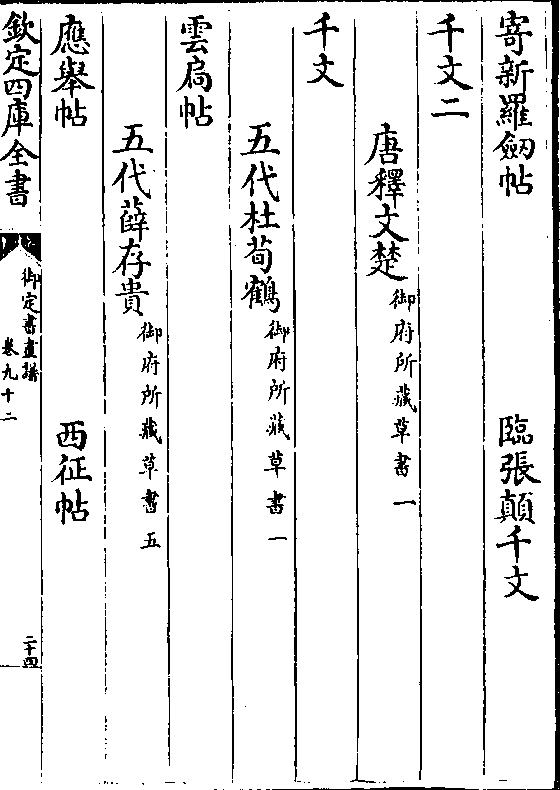 寄新羅劔帖　臨張顛千文
千文二
唐釋文楚御府所藏草書一
千文
五代杜荀鶴御府所藏草書一
雲扃帖
五代薛存貴御府所藏草書五
應舉帖　西征帖
欽定四庫全書　御定書畫譜卷九十二　二十四